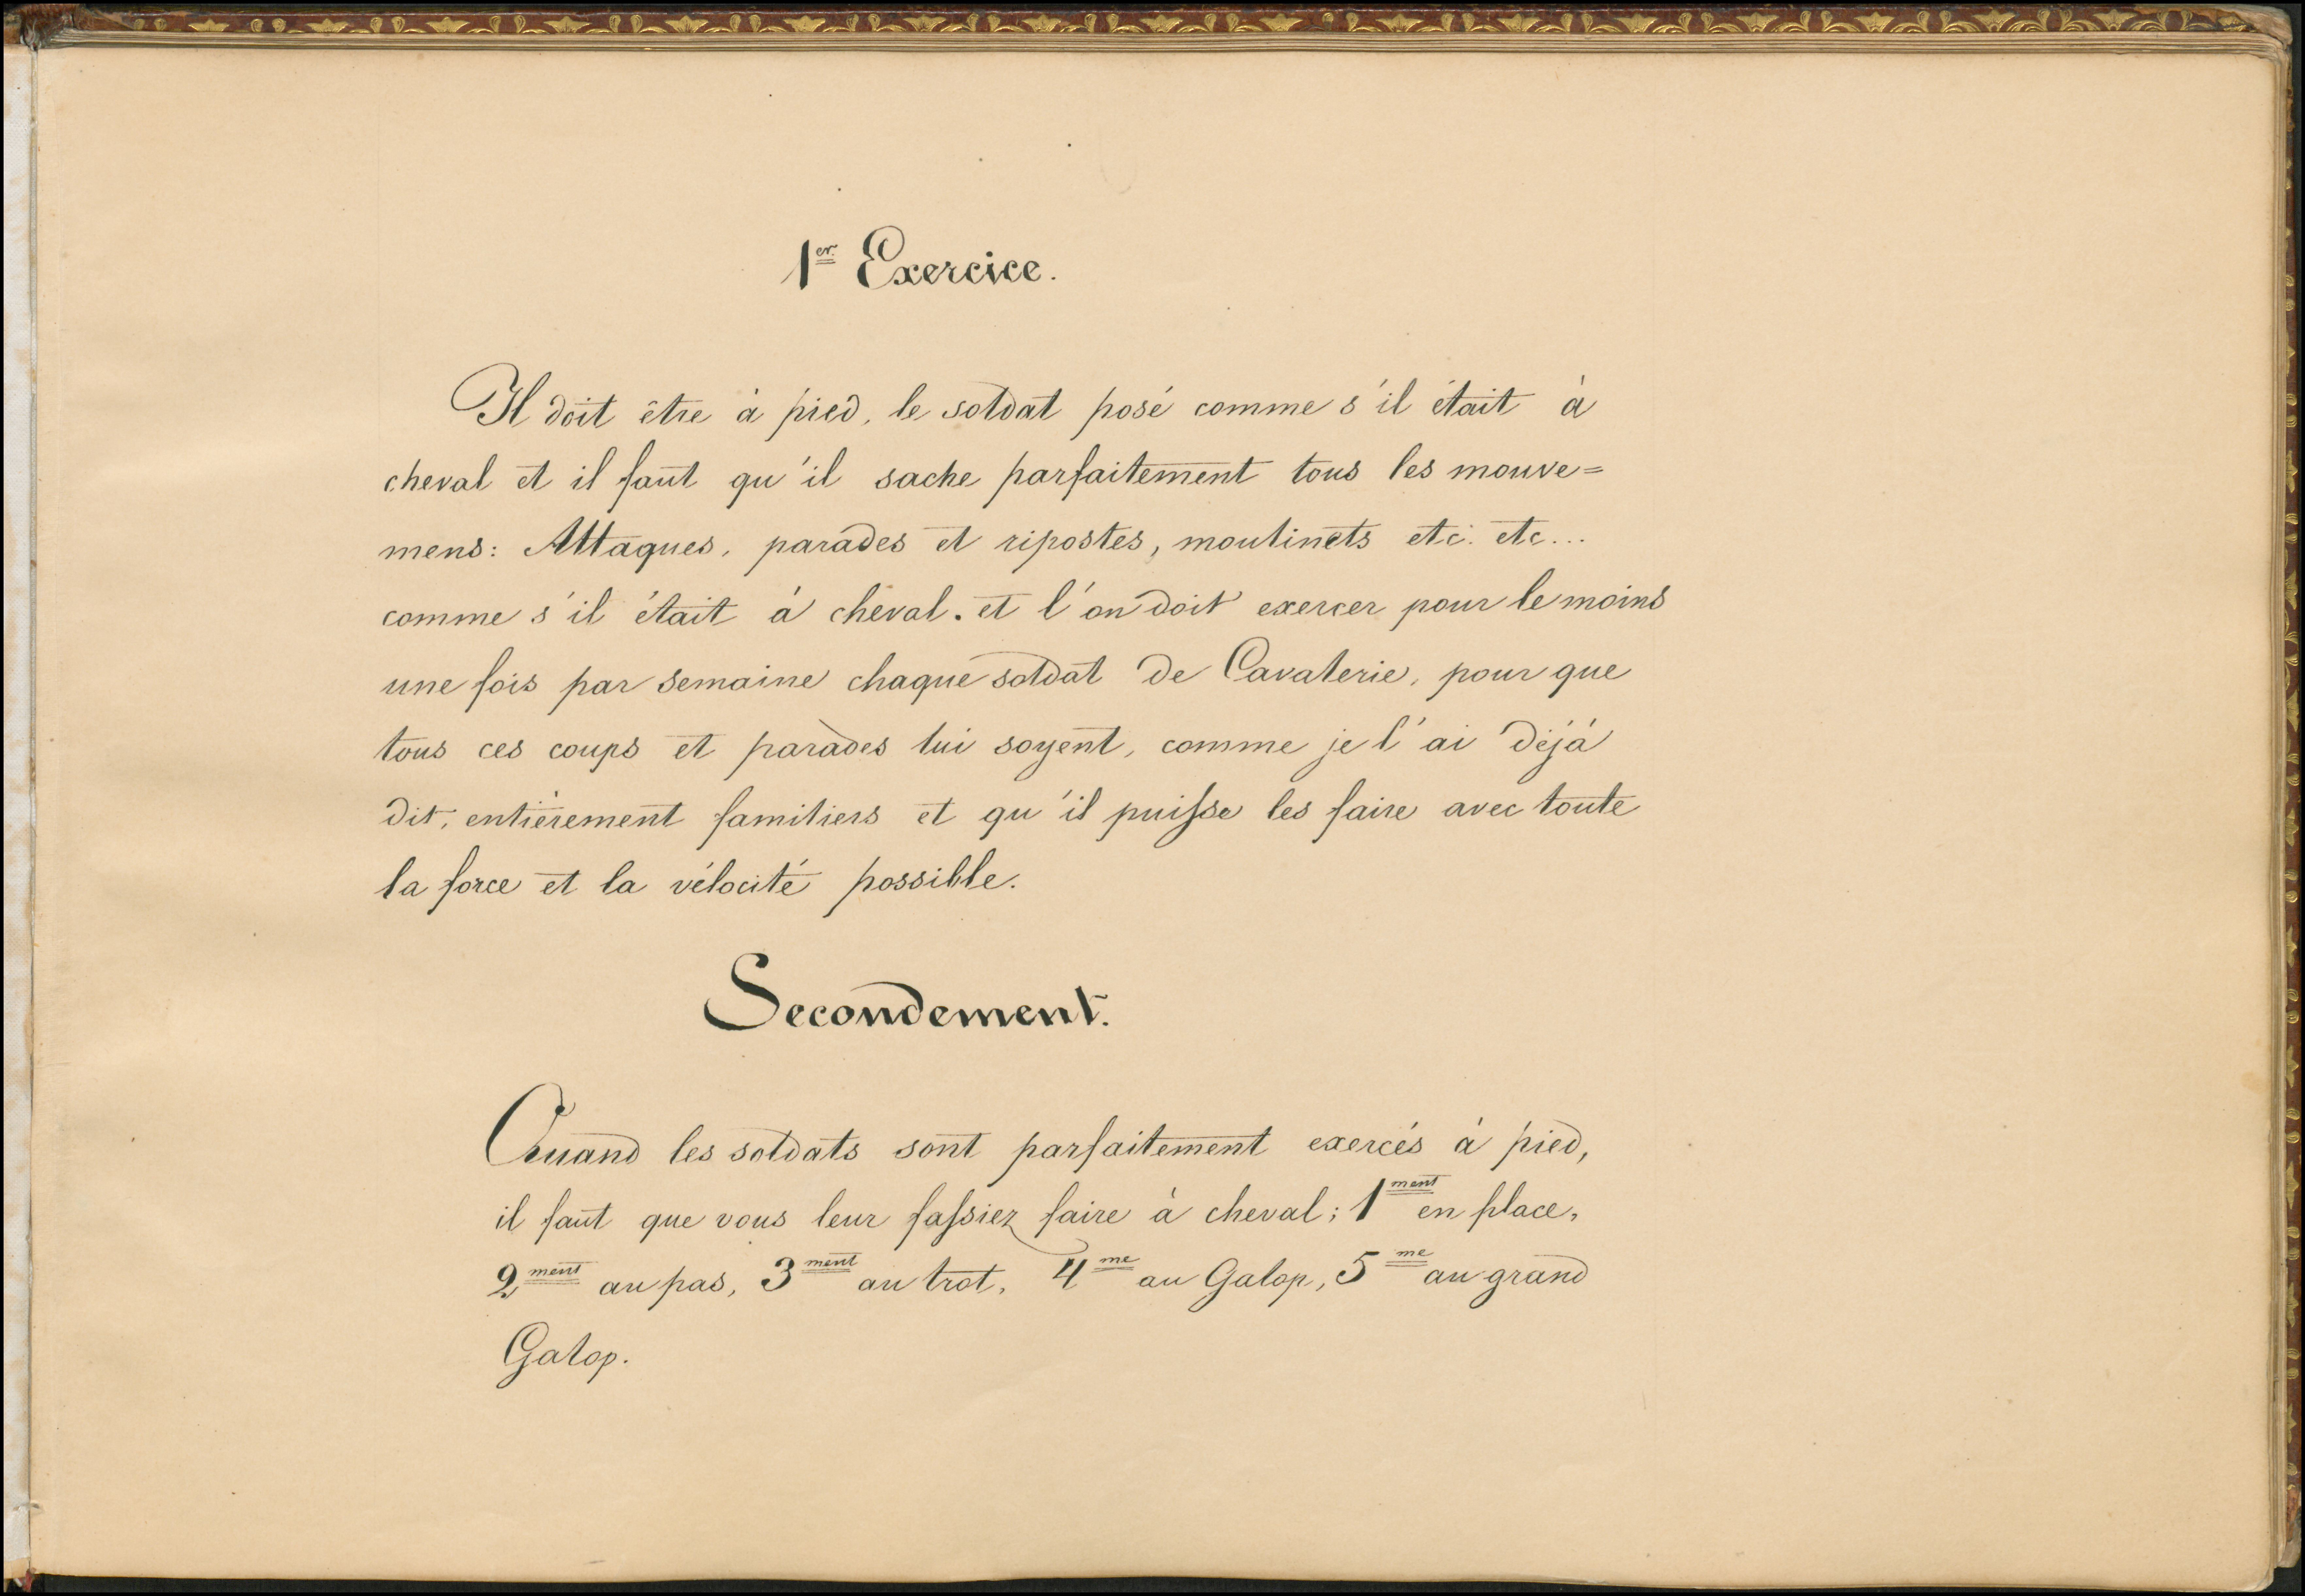 1er Exercice.
Il doit être à pied, le soldat posé comme s'il était à
cheval et il faut qu'il sache parfaitement tous les mouve=
mens: Attaques, parades et ripostes, moulinets etc. etc...
comme s'il était à cheval. et l'on doit exercer pour le moins
une fois par semaine chaque soldat de Cavalerie, pour que
tous ces coups et parades lui soyent, comme je l'ai déjà
dit, entièrement familiers et qu'il puisse les faire avec toute
la force et la vélocité possible.
Secondement.
Quand les soldats sont parfaitement exercés à pied,
il faut que vous leur fassiez faire à cheval; 1ment en place,
2ment au pas, 3ment au trot, 4me au Galop, 5me au grand
Galop.